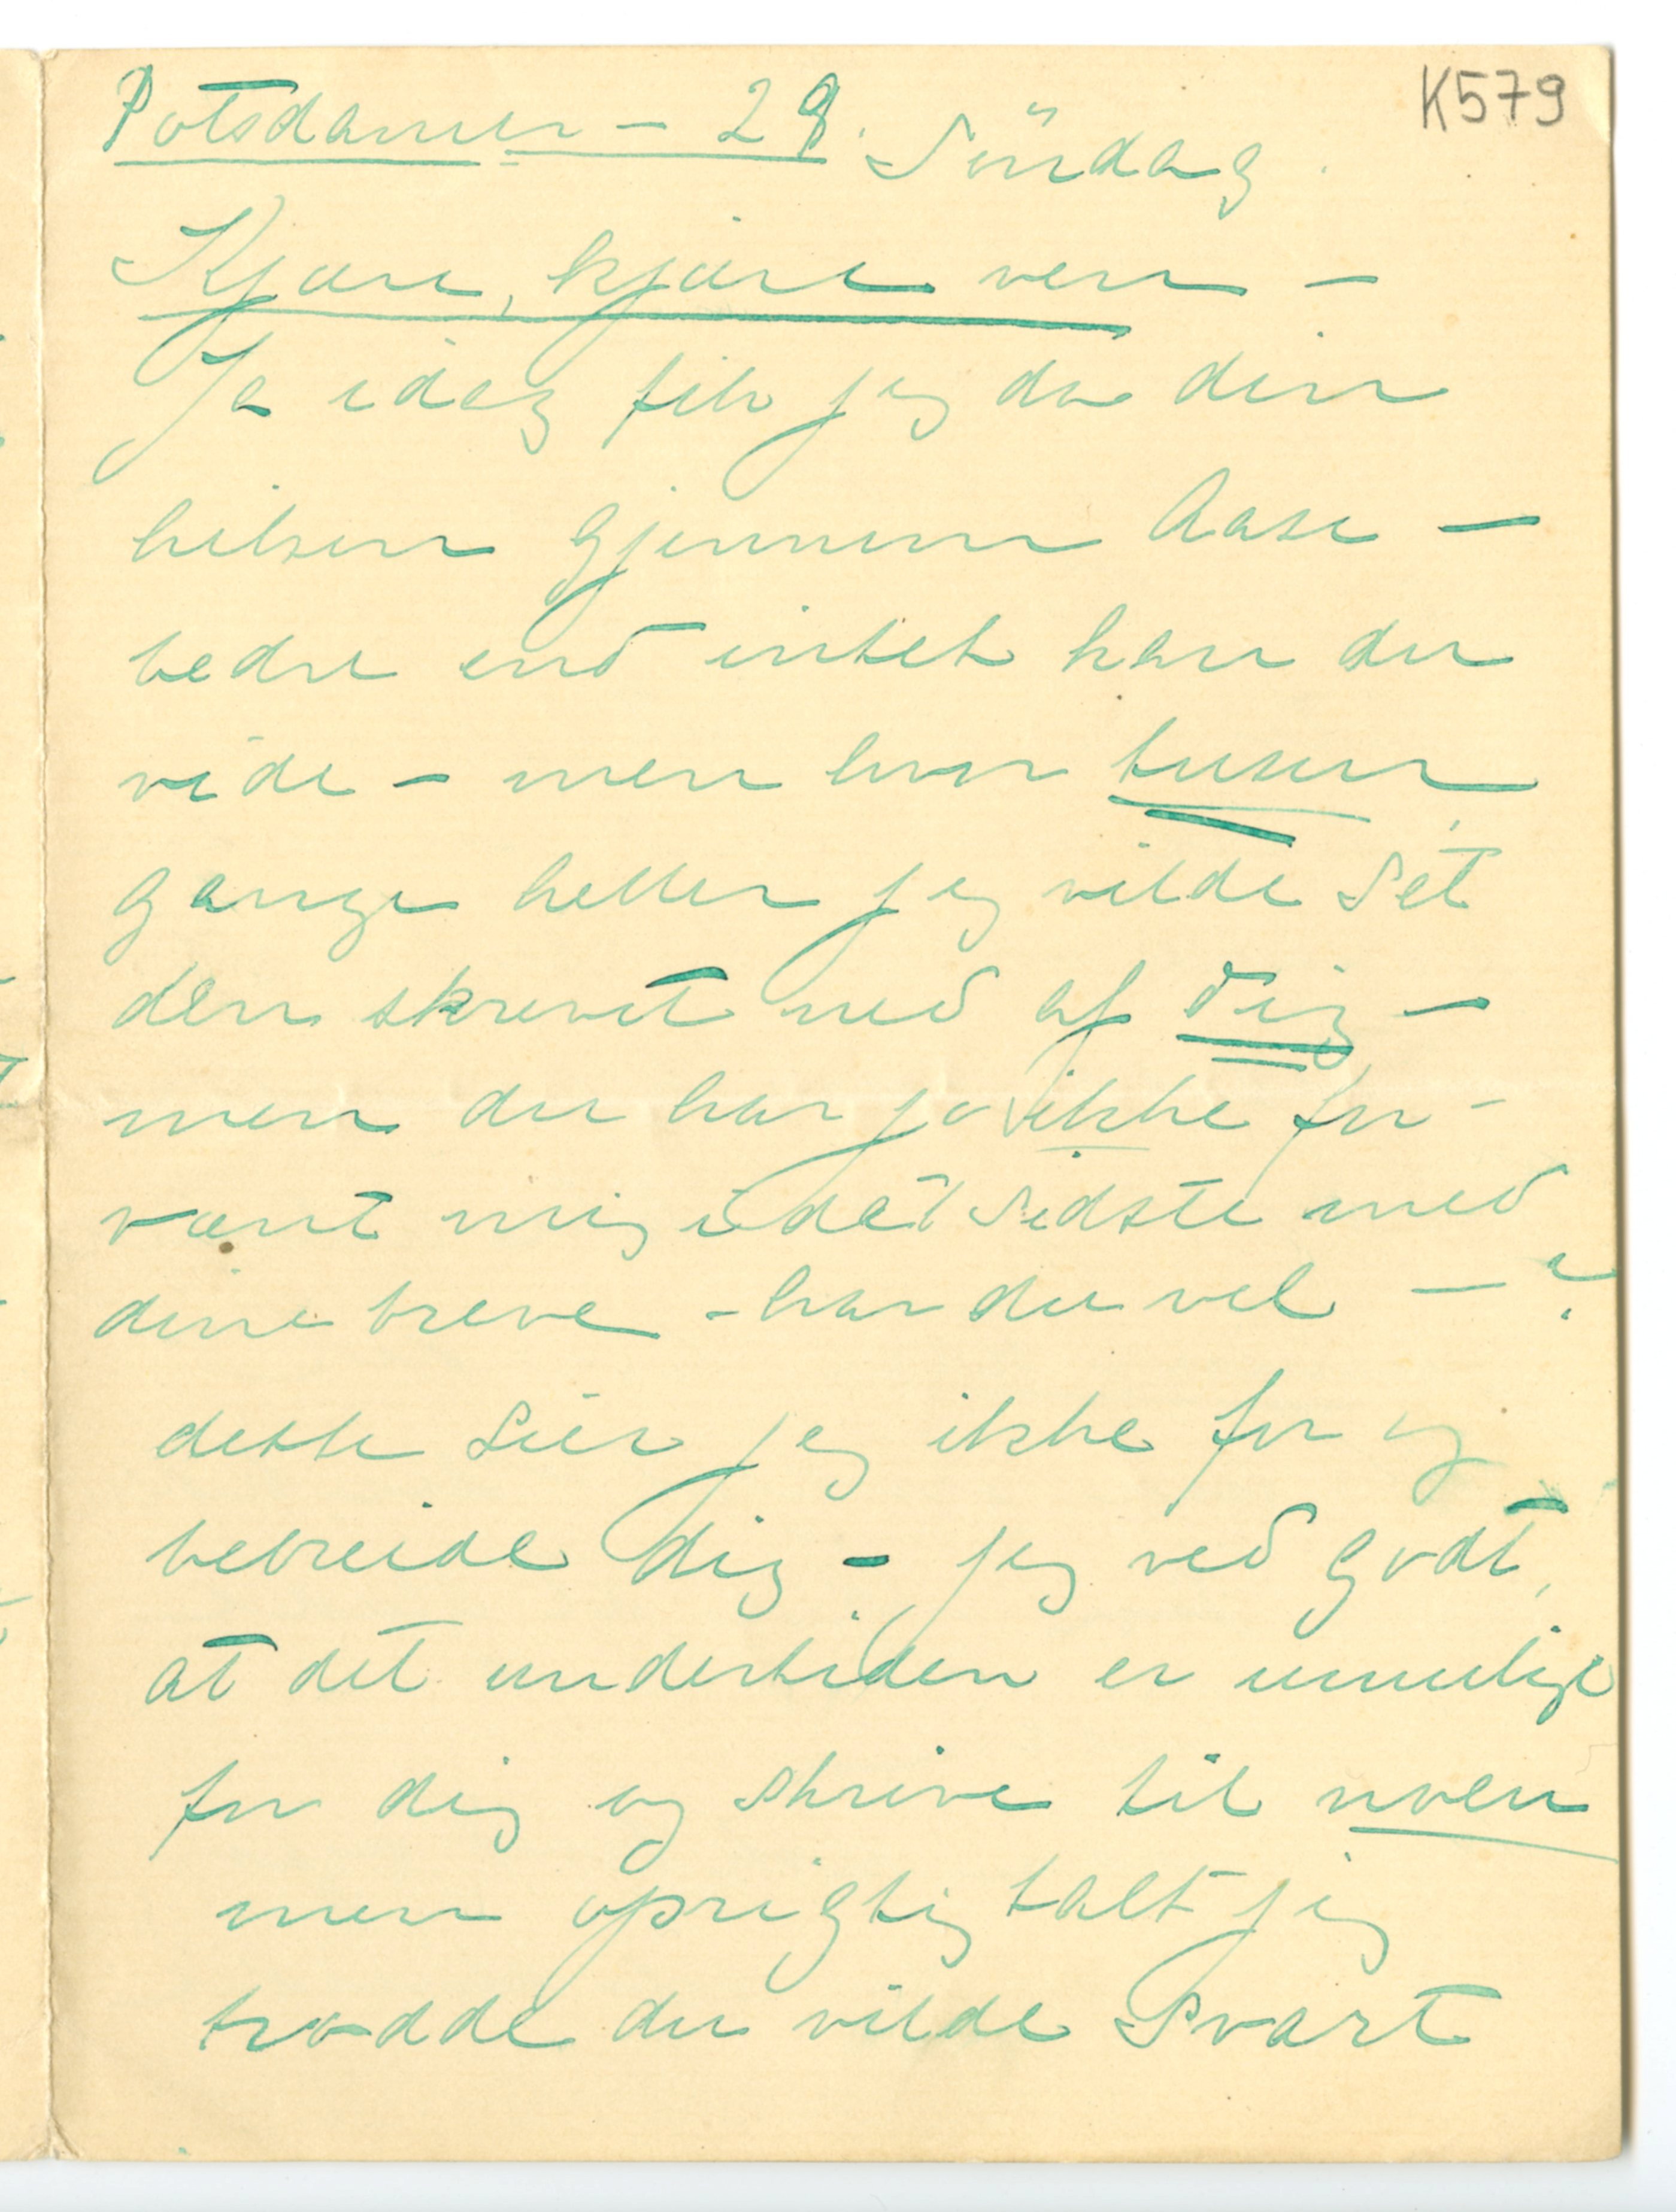 K579
Potsdamer - 29. Söndag.
Kjære, kjære ven -
Ja idag fik jeg da din
hilsen gjennem Aase -
bedre end intet kan du
vide - men hvor tusen
gange heller jeg vilde set
den skrevet ned af dig -
men du har jo ikke for-
vænt mig i det sidste med
dine breve - har du vel - ?
dette sier jeg ikke for og
bebreide dig - jeg ved godt,
at det undertiden er umulige
for dig og skrive til noen
men oprigtig talt jeg
trodde du vilde svart